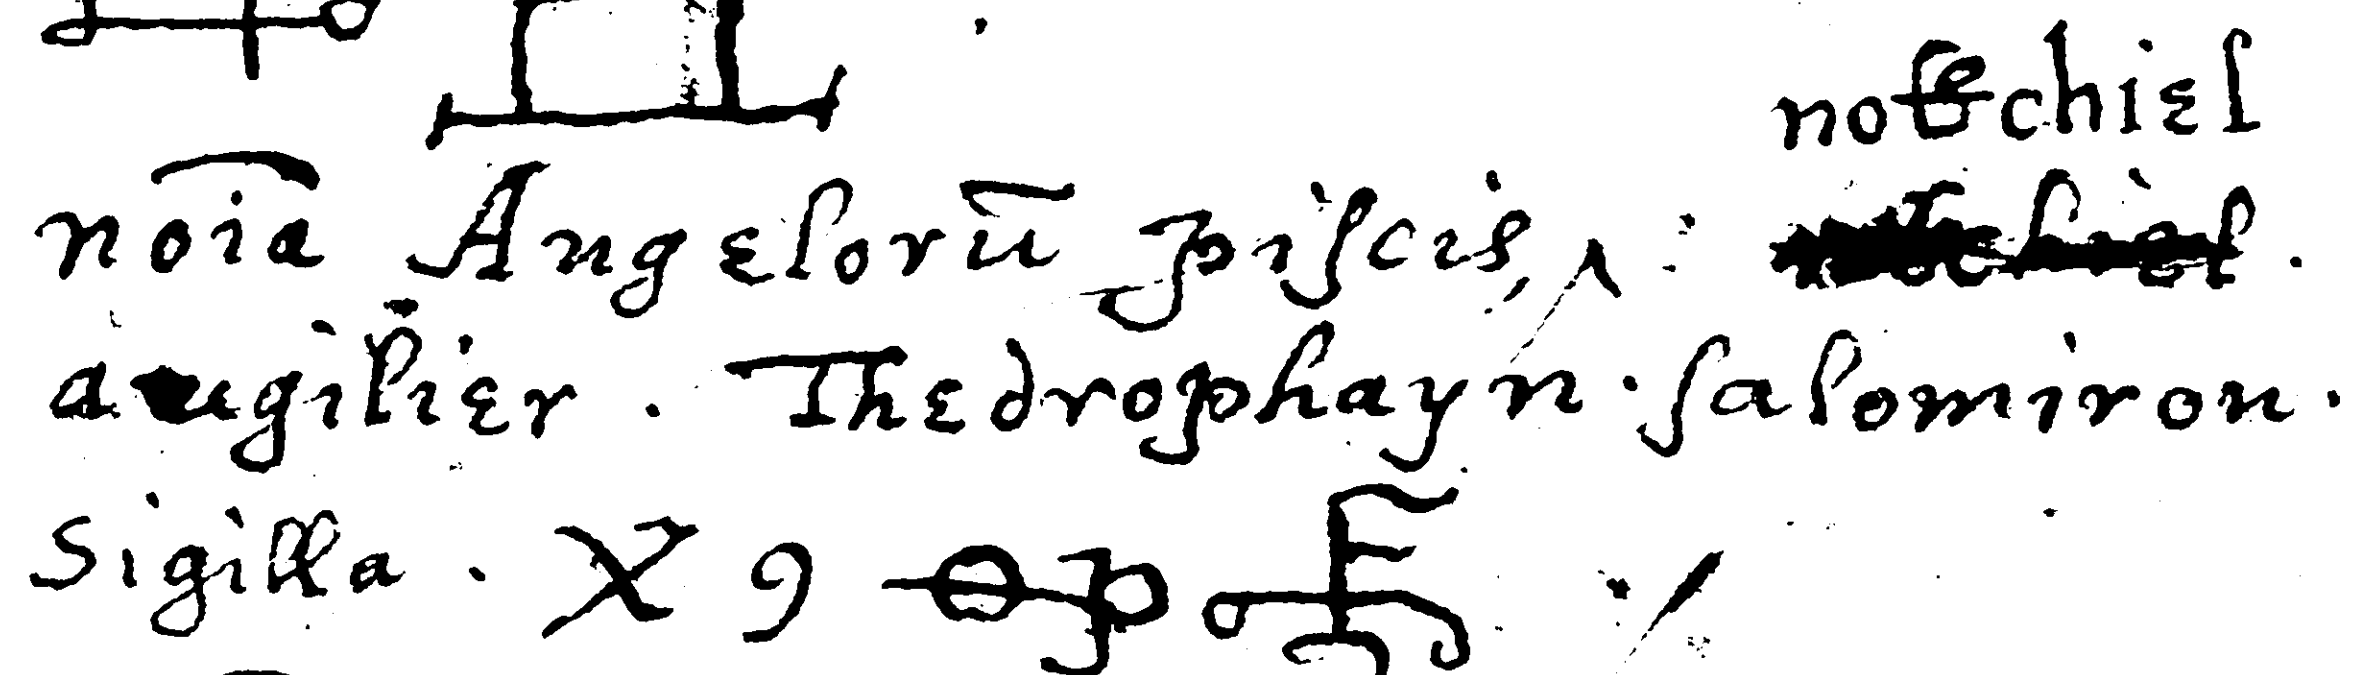 noia Angelorū piscis, :
augilier . Thedrophayn . salomiron .
Sigilla .